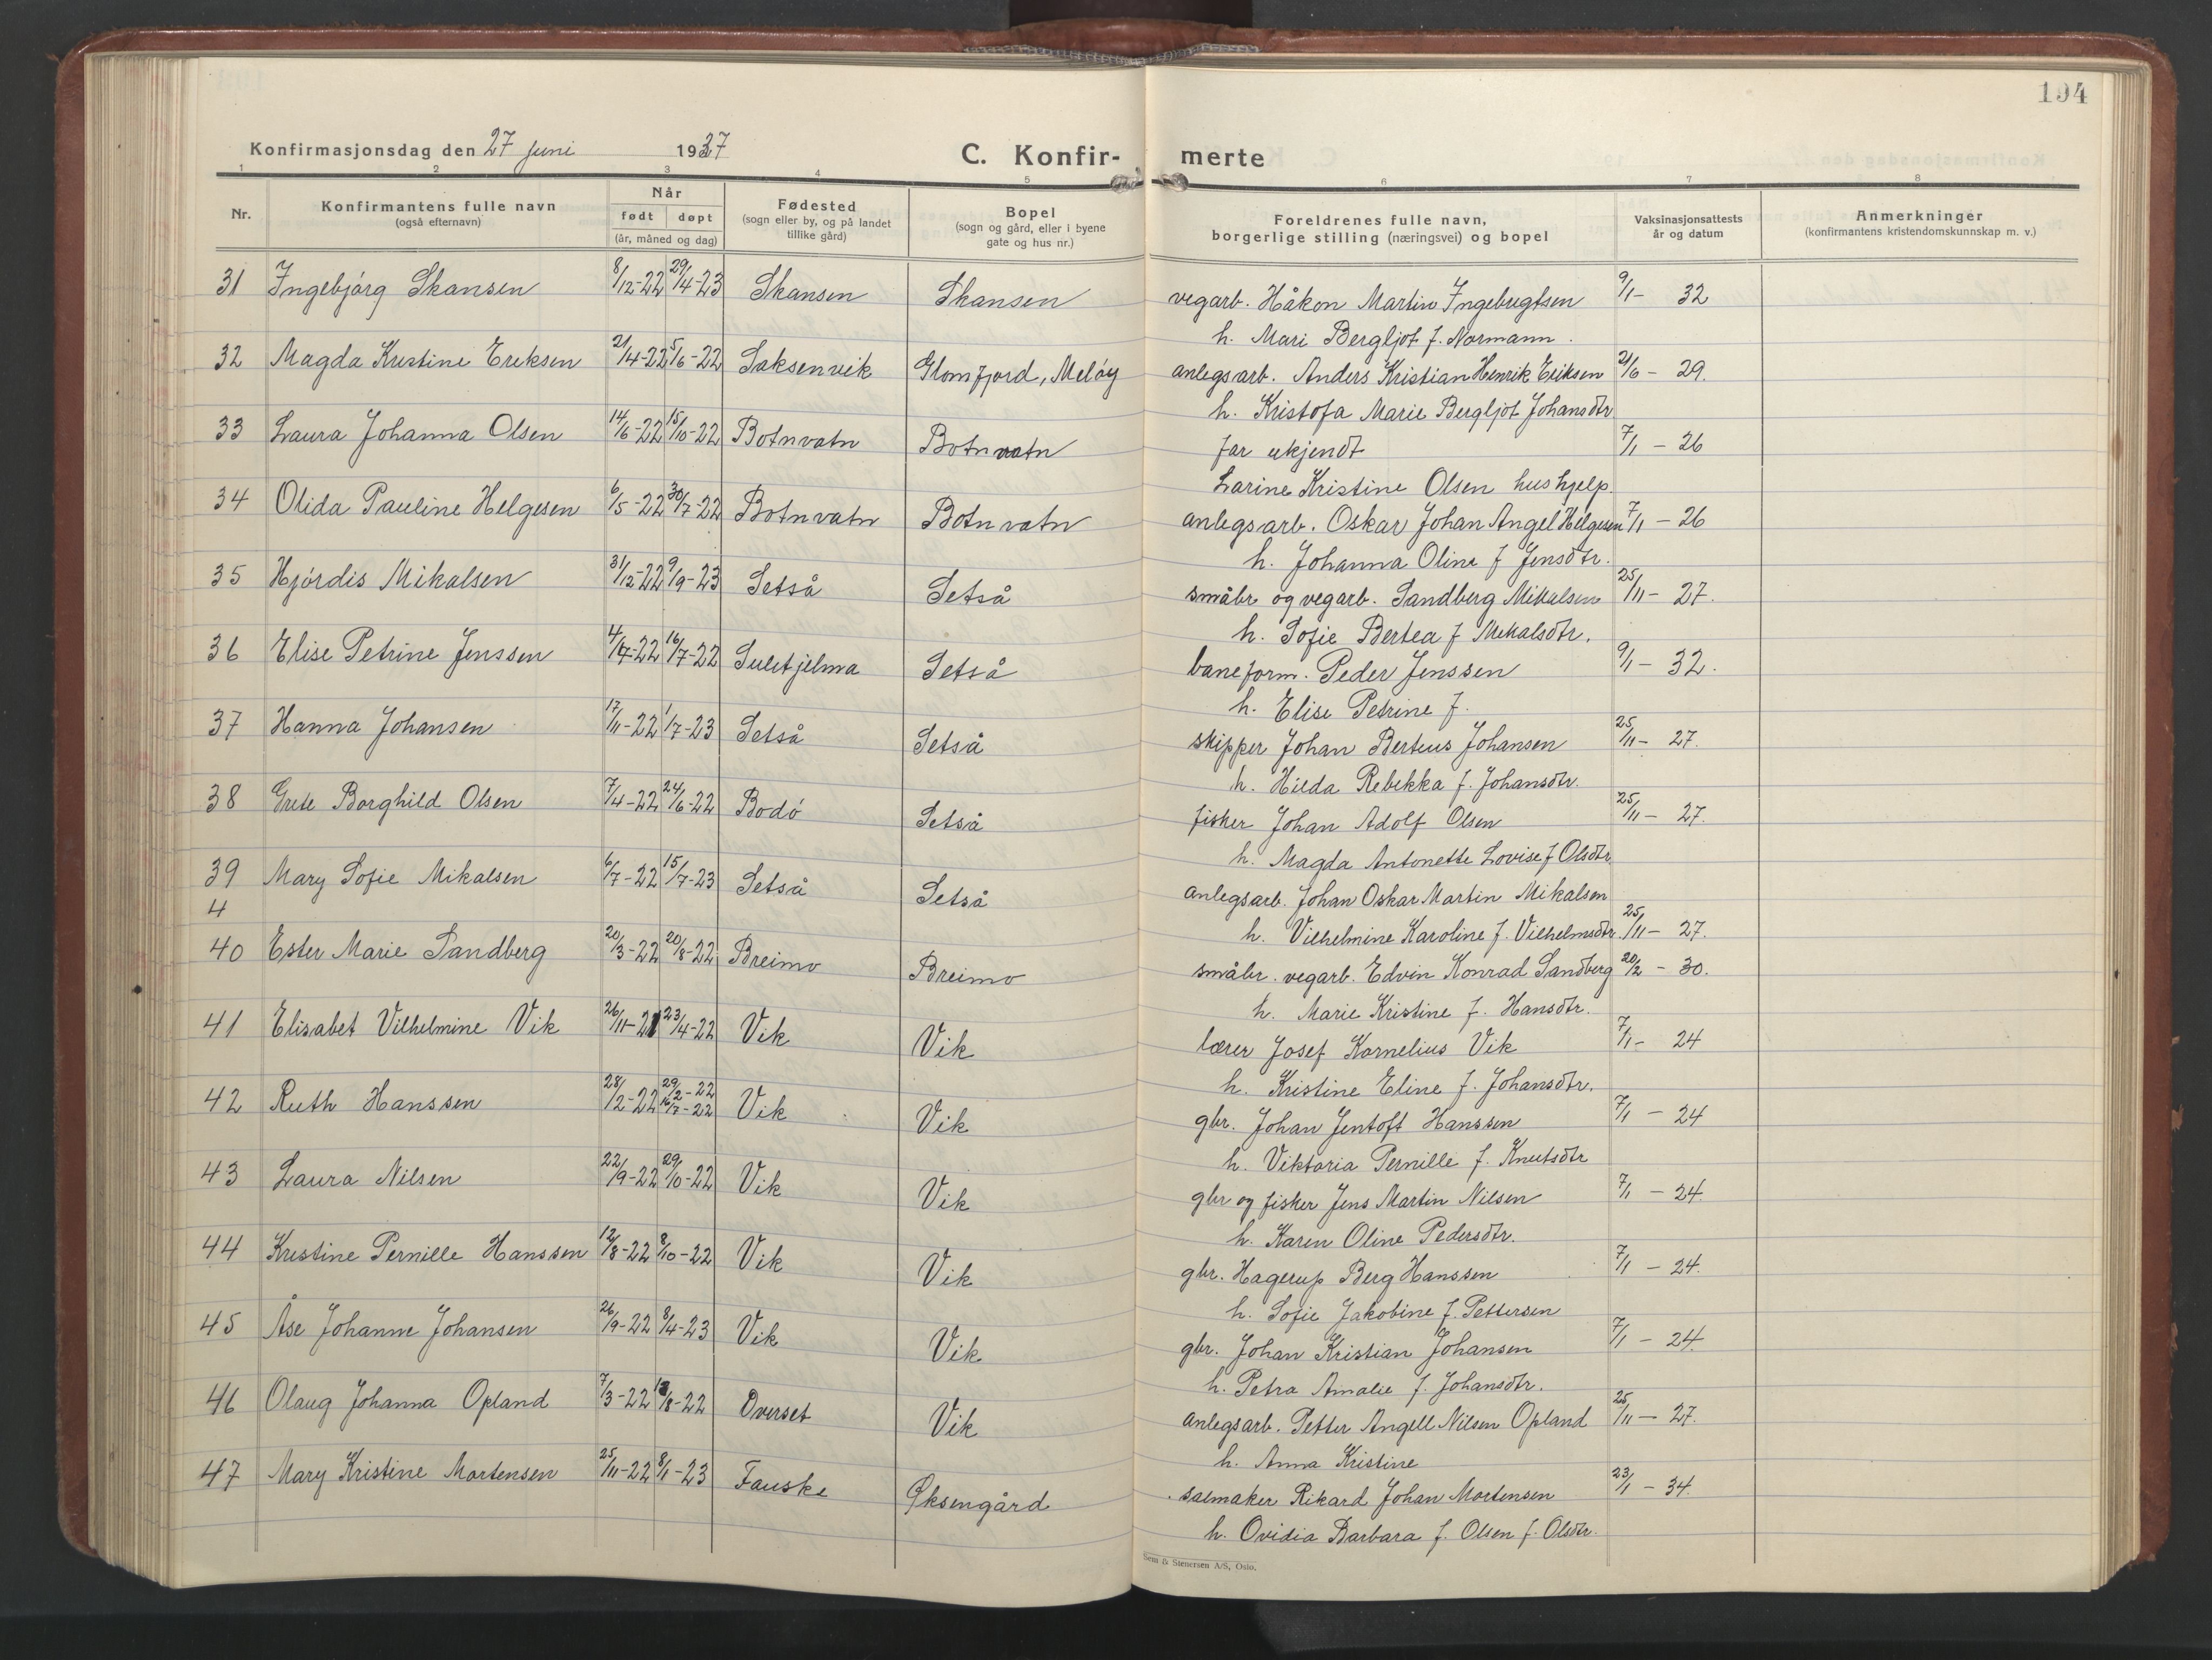 194
Konfirmasjonsdag den 27 juni 1937
C. Konfir- merte
1 2 3 4 5 6 7 8
Nr. Konfirmantens fulle navn (også efternavn) Når født døpt (år, måned og dag) Fødested (sogn eller by, og på landet tillike gård) Bopel (sogn og gård, eller i byene gate og hus nr.) Foreldrenes fulle navn, borgerlige stilling (næringsvei) og bopel Vaksinasjonsattests år og datum Anmerkninger (konfirmantens kristendomskunnskap m. v.)
31 Ingebjørg Skansen 8/12-22 29/4-23 Skansen Skansen vegarb. Håkon Martin Ingebrigtsen 9/1- 32
h. Mari Bergljot f. Normann.
32 Magda Kristine Eriksen 21/4-22 5/6-22 Saksenvik Glomfjord, Meløy anlegsarb. Anders Kristian Henrik Eriksen 21/6- 29.
h. Kristofa Marie Bergljot Johansdtr
33 Laura Johanna Olsen 14/6-22 15/10-22 Botnvatn Botnvatn far ukjendt 7/1 - 26
Larine Kristine Olsen hushjelp.
34 Olida Pauline Helgesen 6/5-22 30/7-22 Botnvatn Botnvatn anlegsarb. Oskar Johan Angel Helgesen 7/1 - 26
h. Johanna Oline f Jensdtr.
35 Hjørdis Mikalsen 31/12-22 9/9-23 Setså Setså småbr og vegarb. Sandberg Mikalsen 25/11- 27.
h. Sofie Bertea f Mikalsdtr.
36 Elise Petrine Jenssen 4/7-22 16/7-22 Sulitjelma Setså baneform. Peder Jenssen 9/1- 32.
h. Elise Petrine f.
37 Hanna Johansen 17/11-22 1/7-23 Setså Setså skipper Johan Berteus Johansen 25/11- 27.
h. Hilda Rebekka f. Johansdtr.
38 Grete Borghild Olsen 7/4-22 24/6-22 Bodø Setså fisker Johan Adolf Olsen 25/11- 27.
h. Magda Antonette Lovise f Olsdtr
39 Mary Sofie Mikalsen 6/7-22 15/7-23 Setså Setså anlegsarb. Johan Oskar Martin Mikalsen
4
h. Vilhelmine Karoline f. Vilhelmsdtr. 25/11- 27.
40 Ester Marie Sandberg 20/3-22 20/8-22 Breimo Breimo småbr. vegarb. Edvin Konrad Sandberg 20/2 - 30.
h. Marie Kristine f. Hansdtr.
41 Elisabet Vilhelmine Vik 26/11-21 23/4-22 Vik Vik lærer Josef Kornelius Vik 7/1- 24
h. Kristine Eline f. Johansdtr.
42 Ruth Hanssen 28/2-22 29/2-22 16/7-22 Vik Vik gbr. Johan Jentoft Hanssen 7/1 - 24
h. Viktoria Pernille f. Knutsdtr
43 Laura Nilsen 22/9-22 29/10-22 Vik Vik gbr og fisker Jens Martin Nilsen 7/1 - 24.
h. Karen Oline Pedersdtr.
44 Kristine Pernille Hanssen 12/8-22 8/10-22 Vik Vik gbr. Hagerup Berg Hanssen 7/1 - 24.
h. Sofie Jakobine f. Pettersen
45 Åse Johanne Johansen 26/9-22 8/4-23 Vik Vik gbr. Johan Kristian Johansen 7/1 - 24.
h. Petra Amalie f. Johansdtr.
46 Olaug Johanna Opland 7/3-22 /8-22 Överset Vik anlegsarb. Petter Angell Nilsen Opland 25/11- 27.
h. Anna Kristine
47 Mary Kristine Mortensen 25/11-22 8/1-23 Fauske Øksengård salmaker Rikard Johan Mortensen 23/1 - 34.
h. Ovidia Barbara f. Olsen f. Olsdtr.
Sem & Stenersen A/S, Oslo.